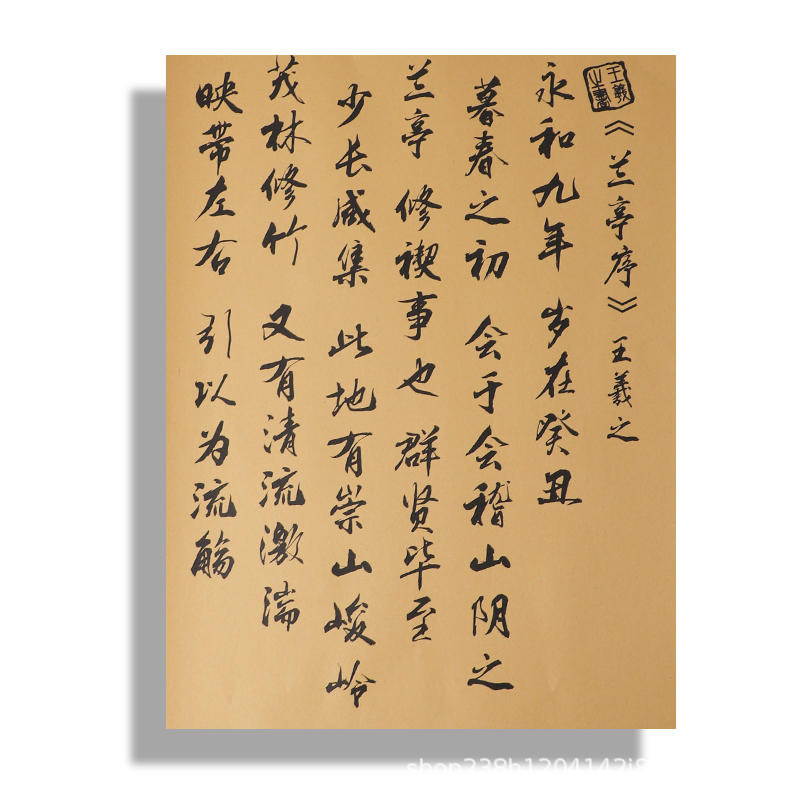 王羲之書
《兰亭序》 王羲之
永和九年 岁在癸丑
暮春之初 会于会稽山阴之
兰亭 修禊事也 群贤毕至
少长咸集 此地有崇山峻岭
茂林修竹 又有清流激湍
映带左右 引以为流觞